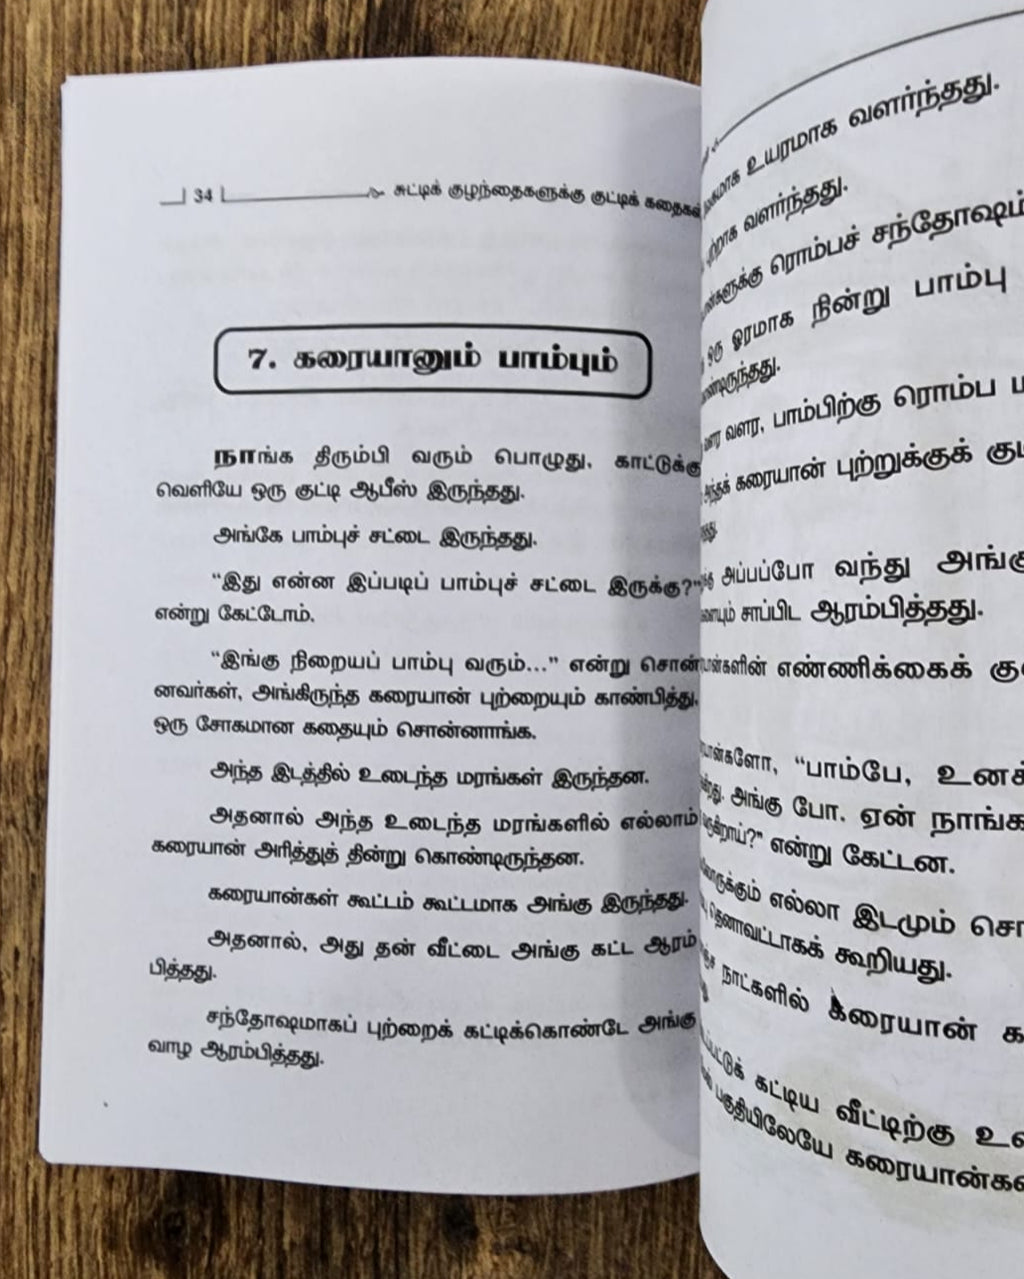 34
சுட்டிக் குழந்தைகளுக்கு குட்டிக் கதைகள்
7. கரையானும் பாம்பும்
நாங்க திரும்பி வரும் பொழுது, காட்டுக்கு
வெளியே ஒரு குட்டி ஆபீஸ் இருந்தது.
அங்கே பாம்புச் சட்டை இருந்தது.
“இது என்ன இப்படிப் பாம்புச் சட்டை இருக்கு?”
என்று கேட்டோம்.
“இங்கு நிறையப் பாம்பு வரும்...” என்று சொன்
னவர்கள், அங்கிருந்த கரையான் புற்றையும் காண்பித்து,
ஒரு சோகமான கதையும் சொன்னாங்க.
அந்த இடத்தில் உடைந்த மரங்கள் இருந்தன.
அதனால் அந்த உடைந்த மரங்களில் எல்லாம்
கரையான் அரித்துத் தின்று கொண்டிருந்தன.
கரையான்கள் கூட்டம் கூட்டமாக அங்கு இருந்தது.
அதனால், அது தன் வீட்டை அங்கு கட்ட ஆரம்
பித்தது.
சந்தோஷமாகப் புற்றைக் கட்டிக்கொண்டே அங்கு
வாழ ஆரம்பித்தது.
உயரமாக வளர்ந்தது.
வளர்ந்தது.
ரொம்பச் சந்தோஷம்
ஒரு ஓரமாக நின்று பாம்பு
வளர, பாம்பிற்கு ரொம்ப
அந்தக் கரையான் புற்றுக்குக்
அப்பப்போ வந்து
சாப்பிட ஆரம்பித்தது.
எண்ணிக்கைக்
“பாம்பே,
அங்கு போ. ஏன்
என்று கேட்டன.
எல்லா இடமும்
தெனாவட்டாகக் கூறியது.
நாட்களில் கரையான்
கட்டிய வீட்டிற்கு
பகுதியிலேயே